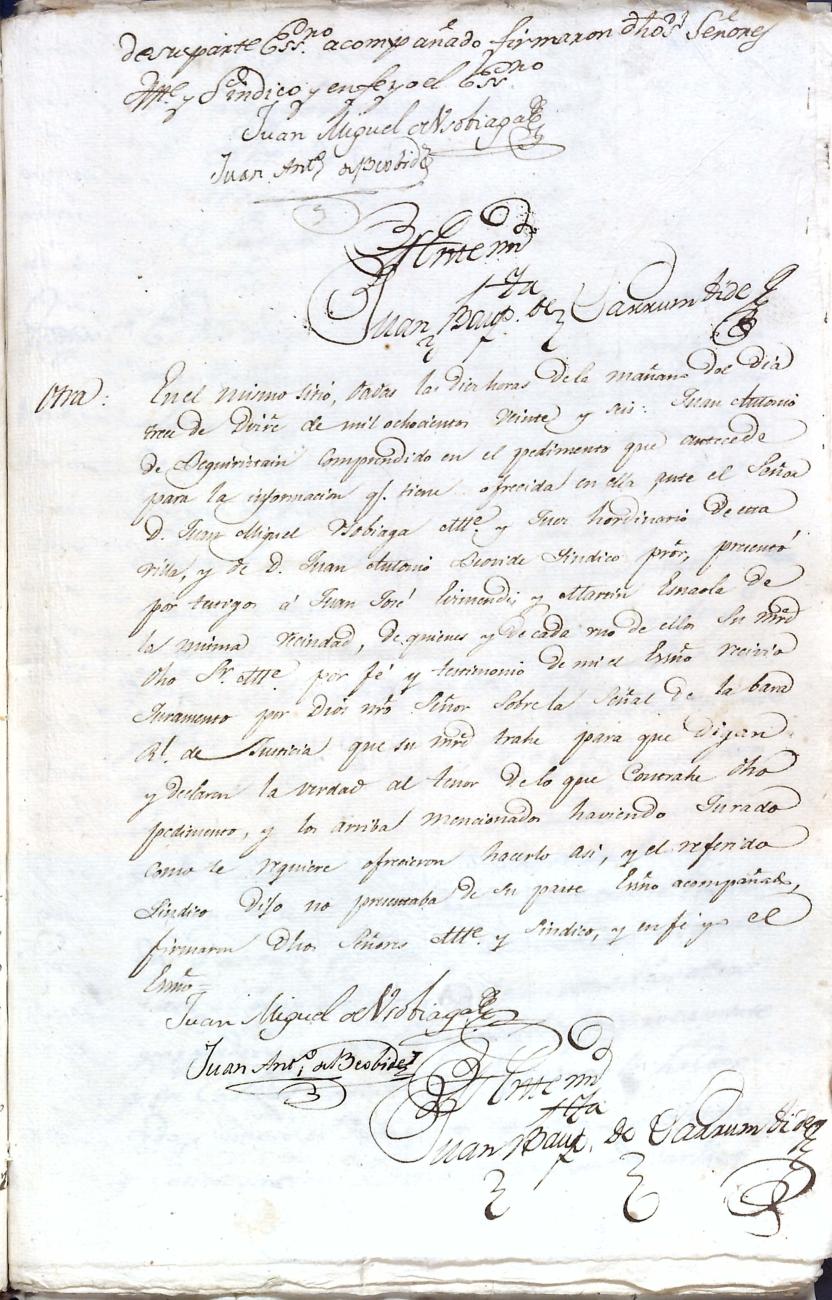 de su parte Essno acompañado firmaron dhos Señores
Alte y Síndico y en fe yo el Essno
Juan Miguel de Vsobiaga
Juan Anto de Beobide
Ante mi
Juan Bauta de Larrumbide
Otra:
En el mismo sitio, dadas las diez horas de la mañana del dia
trece de Dizre de mil ochocientos veinte y seis: Juan Antonio
de Beguiristain comprendido en el pedimento que antecede
para la informacion qe. tiene ofrecida en ella ante el Señor
D. Juan Miguel Vsobiaga Alte y Juez hordinario de esta
villa, y de D. Juan Antonio Beovide Sindico prór, presentó
por testigos á Juan José Lizmendi y Martin Esnaola de
la misma vecindad, de quienes y de cada uno de ellos su mrd
dho Sr. Alte. por fé y testimonio de mi el Essño recivio
Juramento por Dios nro Señor sobre la Señal de la bara
Rl. de Justicia que su mrd trahe para que digan
y declaren la verdad al tenor de lo que contrahe dho
pedimento, y los arriba mencionados haviendo Jurado
como se requiere ofrecieron hacerlo asi, y el referido
Sindico dijo no presentaba de su parte Essño acompañado,
firmaron dhos Señores Alte. y Sindico, y en fé yo el
Essño=
Juan Miguel de Vsobiaga
Juan Anto de Beobide
Ante mi
Juan Bauta de Larrumbide